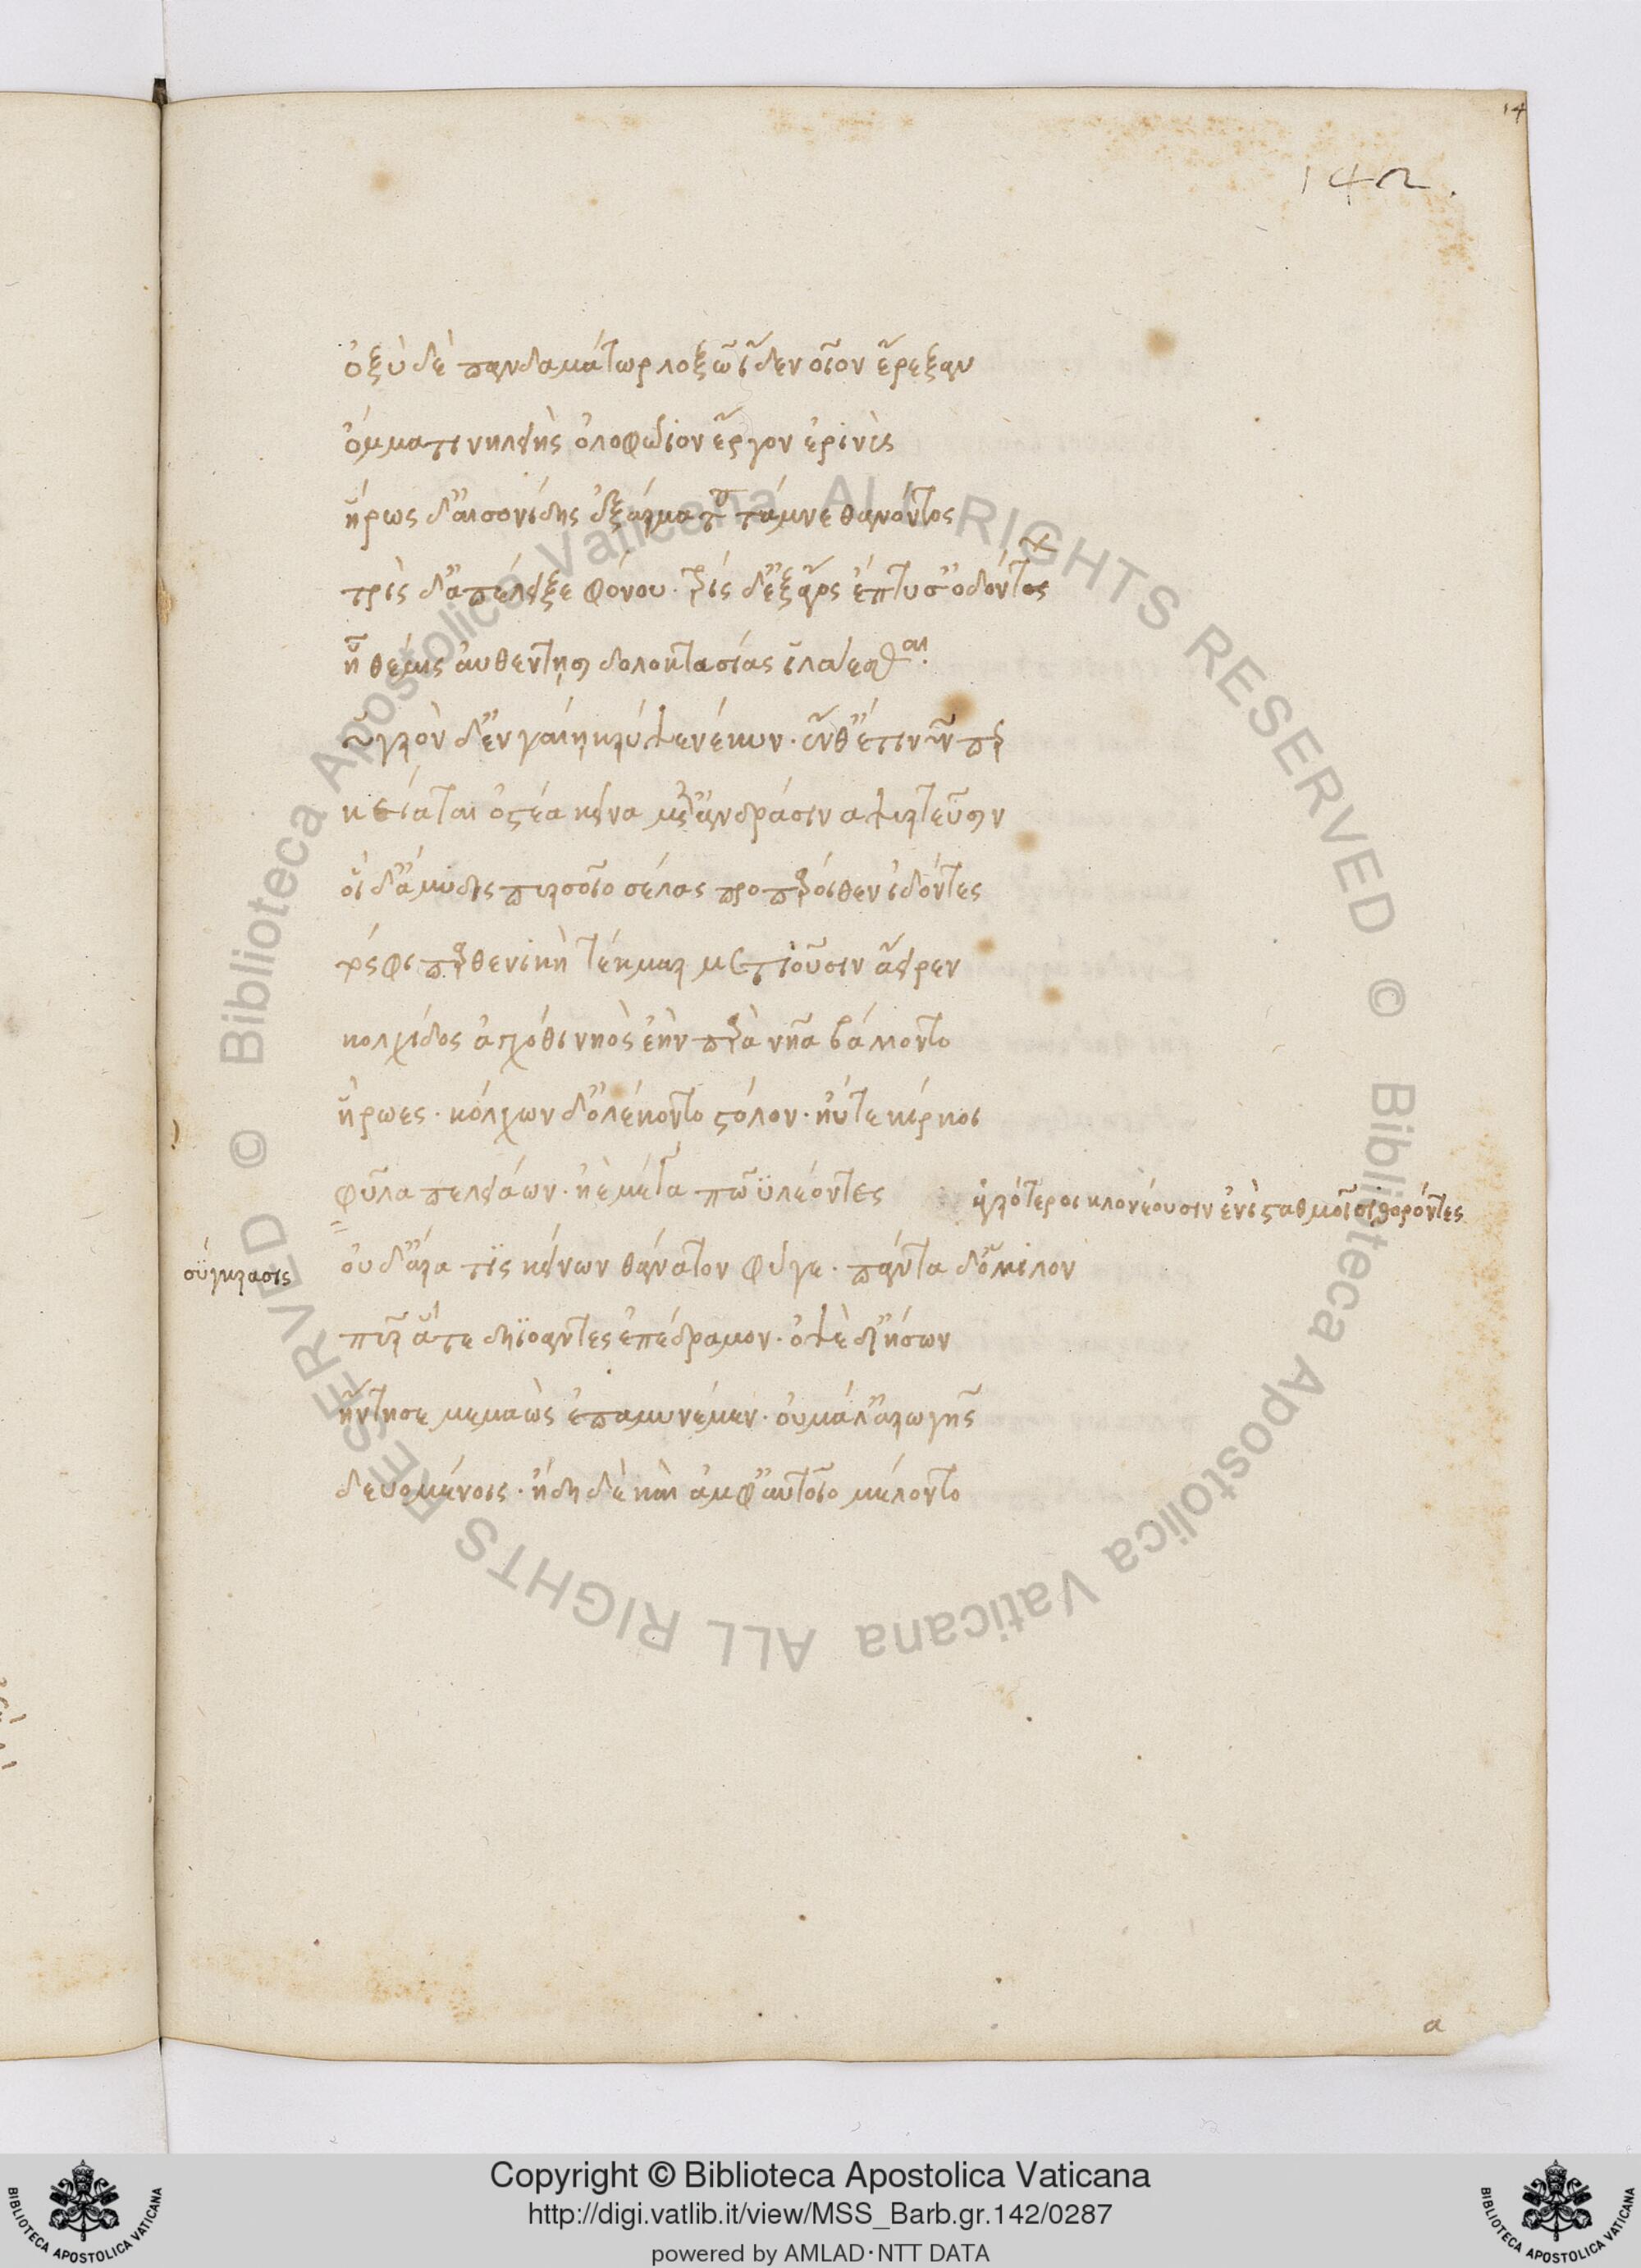 14
142.
ὀξὺ δὲ πανδαμάτωρ λοξῶ ἴδεν οἷον ἔρεξαν
ὄμματι νηλειὴς ὀλοφώιον ἔργον ἐρινὺς
ἥρως δ' αἰσονίδης ἐξάγματα τάμνε θανόντος
τρὶς δ' ἀπέλειξε φόνου. τρὶς δ' ἐξ ἄγος ἔπτυσ' ὀδόντος
ἣ θέμις αὐθέντησι δολοκτασίας ἱλάεσθαι.
ὑγρὸν δ' ἐν γαίη κρύψεν νέκυν. ἔνθ' ἔτι νῦν περ
κείαται ὀστέα κεῖνα μετ' ἀνδράσιν ἀψυρτεῦσιν
οἱ δ' ἄμυδις πυρσοῖο σέλας προπάροιθεν ἰδόντες
τό σφι παρθενικὴ τέκμαρ μετιοῦσιν ἄειρεν
κολχίδος ἀγχόθι νηὸς ἑὴν παρὰ νῆα βάλοντο
ἥρωες. κόλχων δ' ὀλέκοντο στόλον. ἠύτε κίρκοι
φῦλα πελειάων. ἠὲ μέγα πῶϋ λέοντες
ἀγρότεροι κλονέουσιν ἐνὶ σταθμοῖσι θορόντες
σύγκρασις
οὐδ' ἄρα τὶς κείνων θάνατον φύγε. πάντα δ' ὅμιλον
πῦρ ἅ τε δηϊόαντες ἐπέδραμον. ὀψὲ δ' ἰήσων
ἤντησε μεμαὼς ἐπαμυνέμεν. οὐ μάλ' ἀρωγῆς
δευομένοις. ἤδη δὲ καὶ ἀμφ' αὐτοῖο μέλοντο
α
Copyright © Biblioteca Apostolica Vaticana
http://digi.vatlib.it/view/MSS_Barb.gr.142/0287
powered by AMLAD·NTT DATA
BIBLIOTECA APOSTOLICA VATICANA
BIBLIOTECA APOSTOLICA VATICANA
© Biblioteca Apostolica Vaticana ALL RIGHTS RESERVED
© Biblioteca Apostolica Vaticana ALL RIGHTS RESERVED